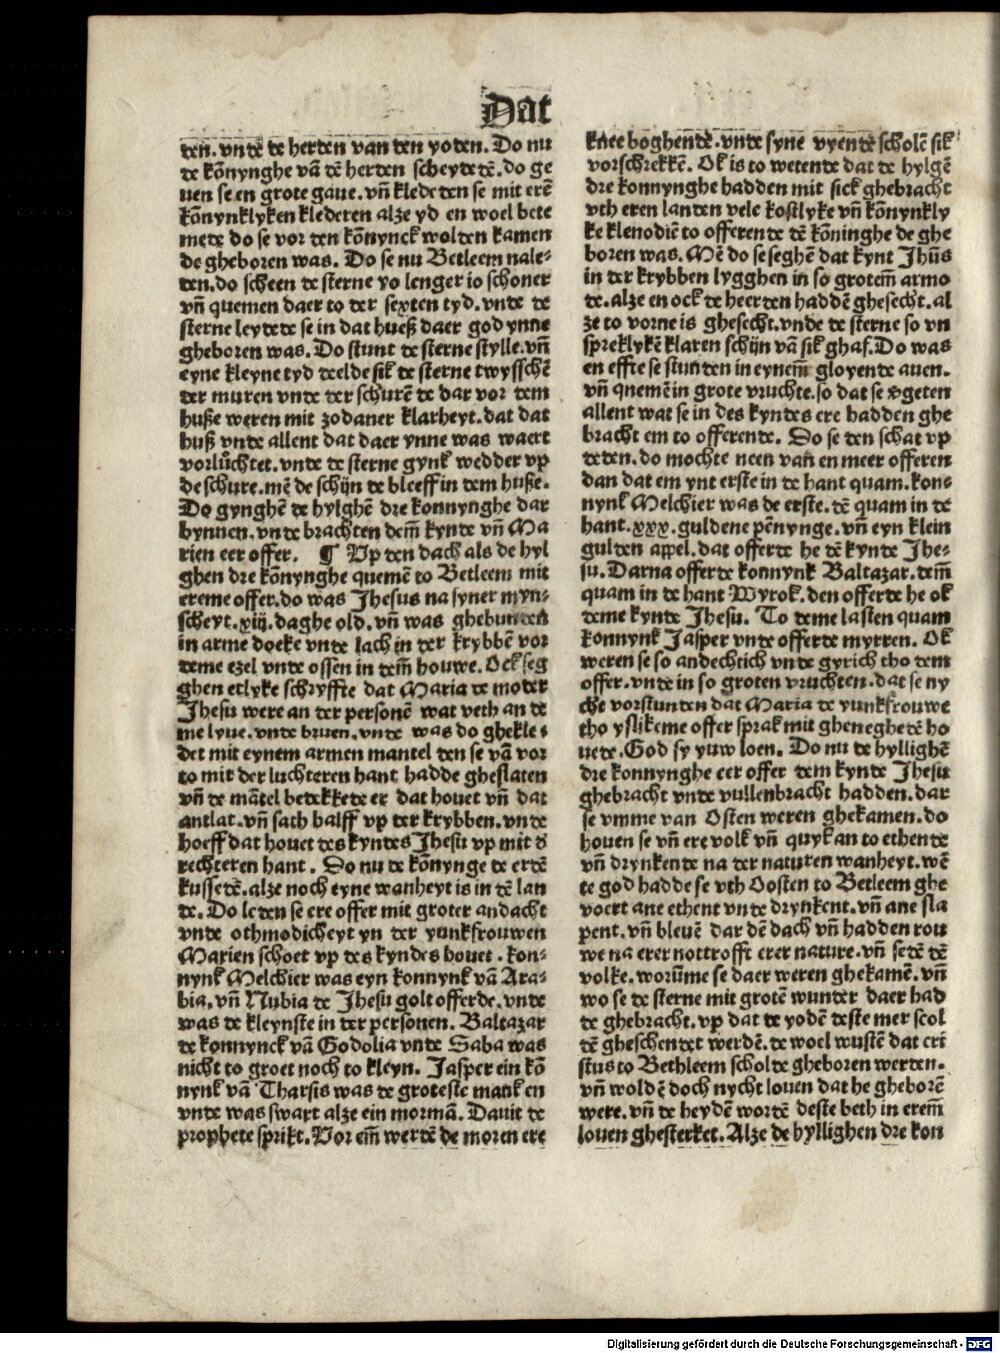 Dat
den. vnde de herden van den yoden. Do nu
de kōnynghe vā dē herden scheydetē. do ge
uen se en grote gaue. vn̄ klededen se mit erē
kōnynklyken klederen alze yd en woel bete
mede do se vor den kōnynck wolden kamen
de gheboren was. Do se nu Betleem nale⸗
den. do scheen de sterne yo lenger io schoner
vn̄ quemen daer to der sexten tyd. vnde de
sterne leydede se in dat hueß daer god ynne
gheboren was. Do stunt de sterne stylle. vn̄
eyne kleyne tyd deelde sik de sterne twysschē
der muren vnde der schurē de dar vor dem
huße weren mit zodaner klarheyt. dat dat
huß vnde allent dat daer ynne was waert
vorlůchtet. vnde de sterne gynk wedder vp
de schure. mē de schijn de bleeff in dem huße.
Do gynghē de hylghē dre konnynghe dar
bynnen. vnde brachten dem̄ kynde vn̄ Ma
rien eer offer. ¶ Vp den dach als de hyl
ghen dre kōnynghe quemē to Betleem mit
ereme offer. do was Jhesus na syner myn⸗
scheyt. xiij. daghe old. vn̄ was ghebunden
in arme doeke vnde lach in der krybbē vor
deme ezel vnde ossen in dem̄ houwe. Ock seg
ghen etlyke schryffte dat Maria de moder
Jhesu were an der personē wat veth an de
me lyue. vnde bruen. vnde was do ghekle⸗
det mit eynem armen mantel den se vā vor
to mit der luchteren hant hadde gheslaten
vn̄ de mātel bedekkede er dat houet vn̄ dat
antlat. vn̄ sath balff vp der krybben. vnde
hoeff dat houet des kyndes Jhesu vp mit d̕
rechteren hant. Do nu de kōnynge de erdē
kussedē. alze noch eyne wanheyt is in dē lan
de. Do leden se ere offer mit groter andacht
vnde othmodicheyt yn der yunkfrouwen
Marien schoet vp des kyndes houet. kon⸗
nynk Melchier was eyn konnynk vā Ara⸗
bia. vn̄ Nubia de Jhesu golt offerde. vnde
was de kleynste in der personen. Baltazar
de konnynck vā Godolia vnde Saba was
nicht to groet noch to kleyn. Jasper ein kō
nynk vā Tharsis was de groteste mank en
vnde was swart alze ein mormā. Dauit de
prophete sprikt. Vor em̄ werdē de moren ere
knee boghendē. vnde syne vyende scholē sik
vorschrekkē. Ok is to wetende dat de hylgē
dre konnynghe hadden mit sick ghebracht
vth eren landen vele kostlyke vn̄ kōnynkly
ke klenodiē to offerende dē kōninghe de ghe
boren was. Mē do se seghē dat kynt Jhūs
in der krybben lygghen in so grotem̄ armo
de. alze en ock de heerden haddē ghesecht. al
ze to vorne is ghesecht. vnde de sterne so vn
spreklykē klaren schijn vā sik ghaf. Do was
en effte se stunden in eynem̄ gloyende auen.
vn̄ quemē in grote vruchte. so dat se vgeten
allent wat se in des kyndes ere hadden ghe
bracht em to offerende. Do se den schat vp
deden. do mochte neen van en meer offeren
dan dat em ynt erste in de hant quam. kon⸗
nynk Melchier was de erste. dē quam in de
hant. xxx. guldene pēnynge. vn̄ eyn klein
gulden appel. dat offerde he dē kynde Jhe⸗
su. Darna offerde konnynk Baltazar. dem̄
quam in de hant Wyrok. den offerde he ok
deme kynde Jhesu. To deme lasten quam
konnynk Jasper vnde offerde myrren. Ok
weren se so andechtich vnde gyrich tho dem
offer. vnde in so groten vruchten. dat se ny
che vorstunden dat Maria de yunkfrouwe
tho yslikeme offer sprak mit gheneghedē ho
uede. God sy yuw loen. Do nu de hyllighē
dre konnynghe eer offer dem kynde Jhesu
ghebracht vnde vullenbracht hadden. dar
se vmme van Osten weren ghekamen. do
houen se vn̄ ere volk vn̄ quyk an to ethende
vn̄ drynkende na der naturen wanheyt. wē
te god hadde se vth Oosten to Betleem ghe
voert ane ethent vnde drynkent. vn̄ ane sla
pent. vn̄ bleuē dar dē dach vn̄ hadden rou
we na erer nottrofft erer nature. vn̄ sedē dē
volke. worūme se daer weren ghekamē. vn̄
wo se de sterne mit grotē wunder daer had
de ghebracht. vp dat de yodē deste mer scol
dē gheschendet werdē. de woel wustē dat cri
stus to Bethleem scholde gheboren werden.
vn̄ woldē doch nycht louen dat he gheborē
were. vn̄ de heydē wordē deste beth in erem̄
louen ghesterket. Alze de hyllighen dre kon
Digitalisierung gefördert durch die Deutsche Forschungsgemeinschaft - DFG